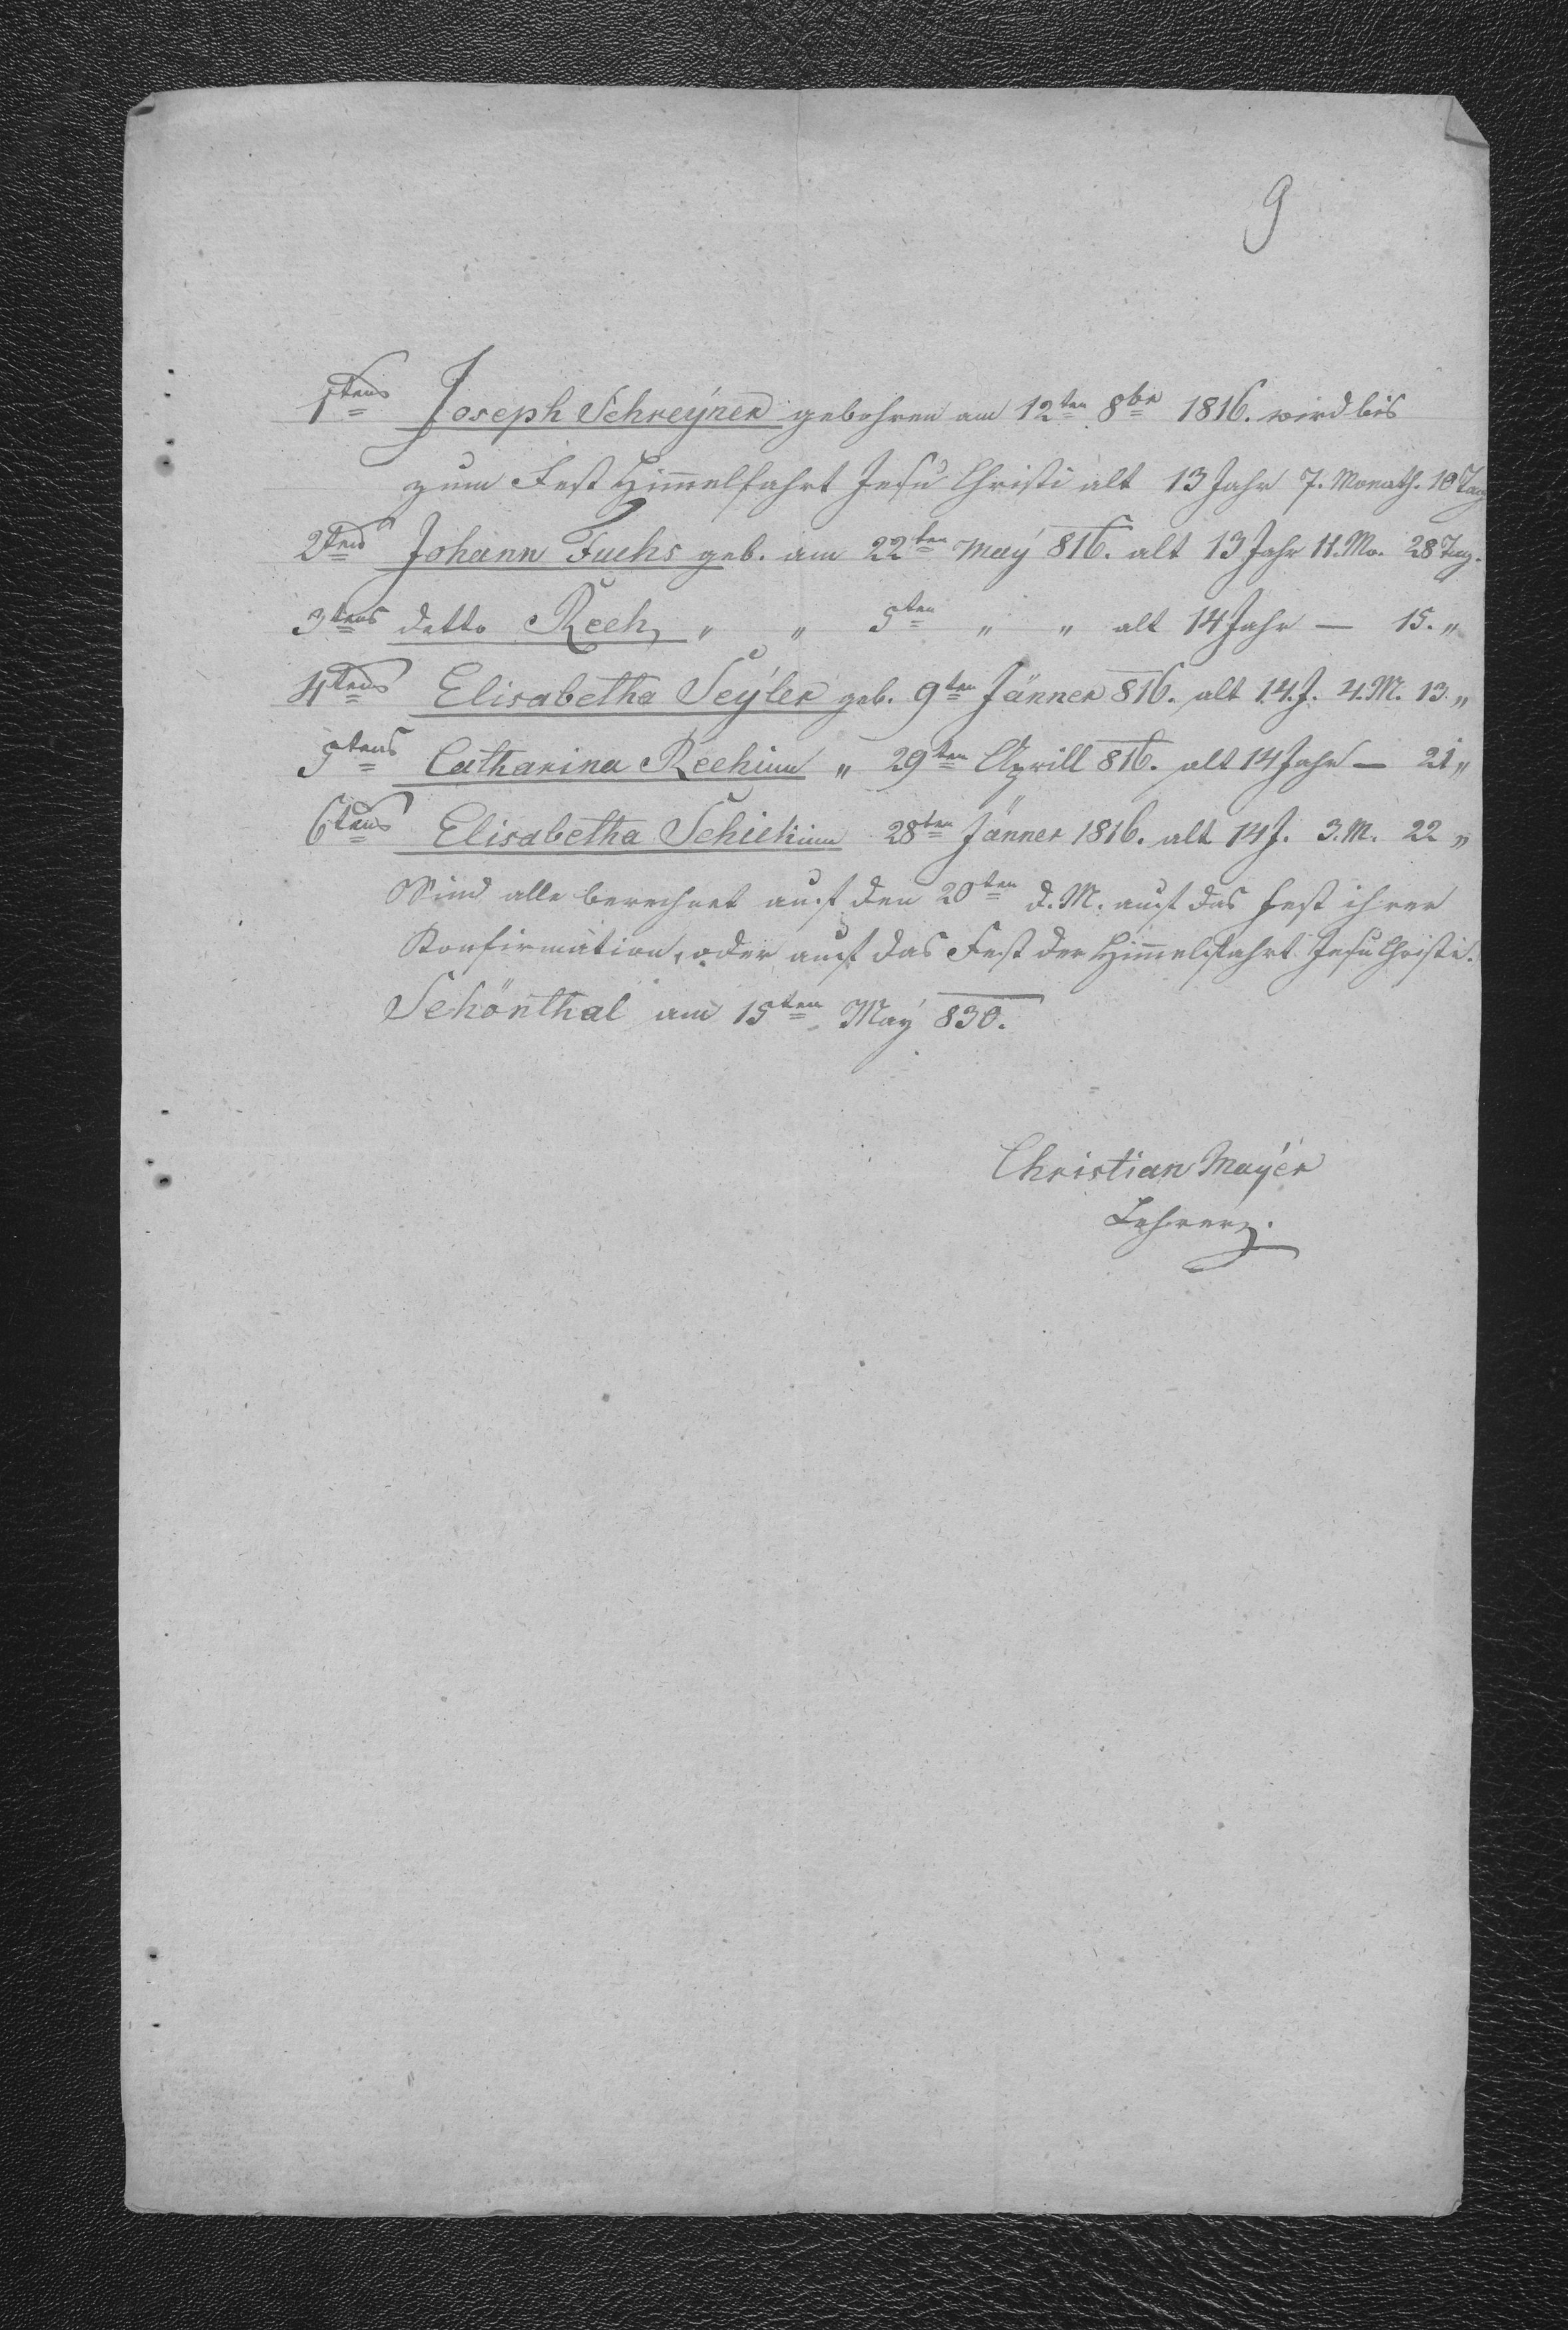 9
1tens Joseph Schreÿner gebohren am 12ten 8br 1816. wird bis
zum Fest Him̄elfahrt Jesu Christi alt 13 Jahr 7. Monath. 10 Tag
2tens Johann Fuchs geb. am 22ten Maÿ 816. alt 13 Jahr 11. Mo. 28 Tag.
3tens detto Reeh, " " 5ten " " alt 14 Jahr — 15. "
4tens Elisabetha Seÿler geb. 9ten Jänner 816. alt 14. J. 4. M. 13 "
5tens Catharina Reehinn " 29ten Aprill 816. alt 14 Jahr — 21 "
6tens Elisabetha Schickinn 28ten Jänner 1816. alt 14 J. 3. M. 22 "
Sind alle berechnet auf den 20ten d. M. auf das Fest ihrer
Konfirmation, oder auf das Fest der Him̄elfahrt Jesu Christi.
Schönthal am 15ten Maÿ 830.
Christian Maÿer
Lehrer